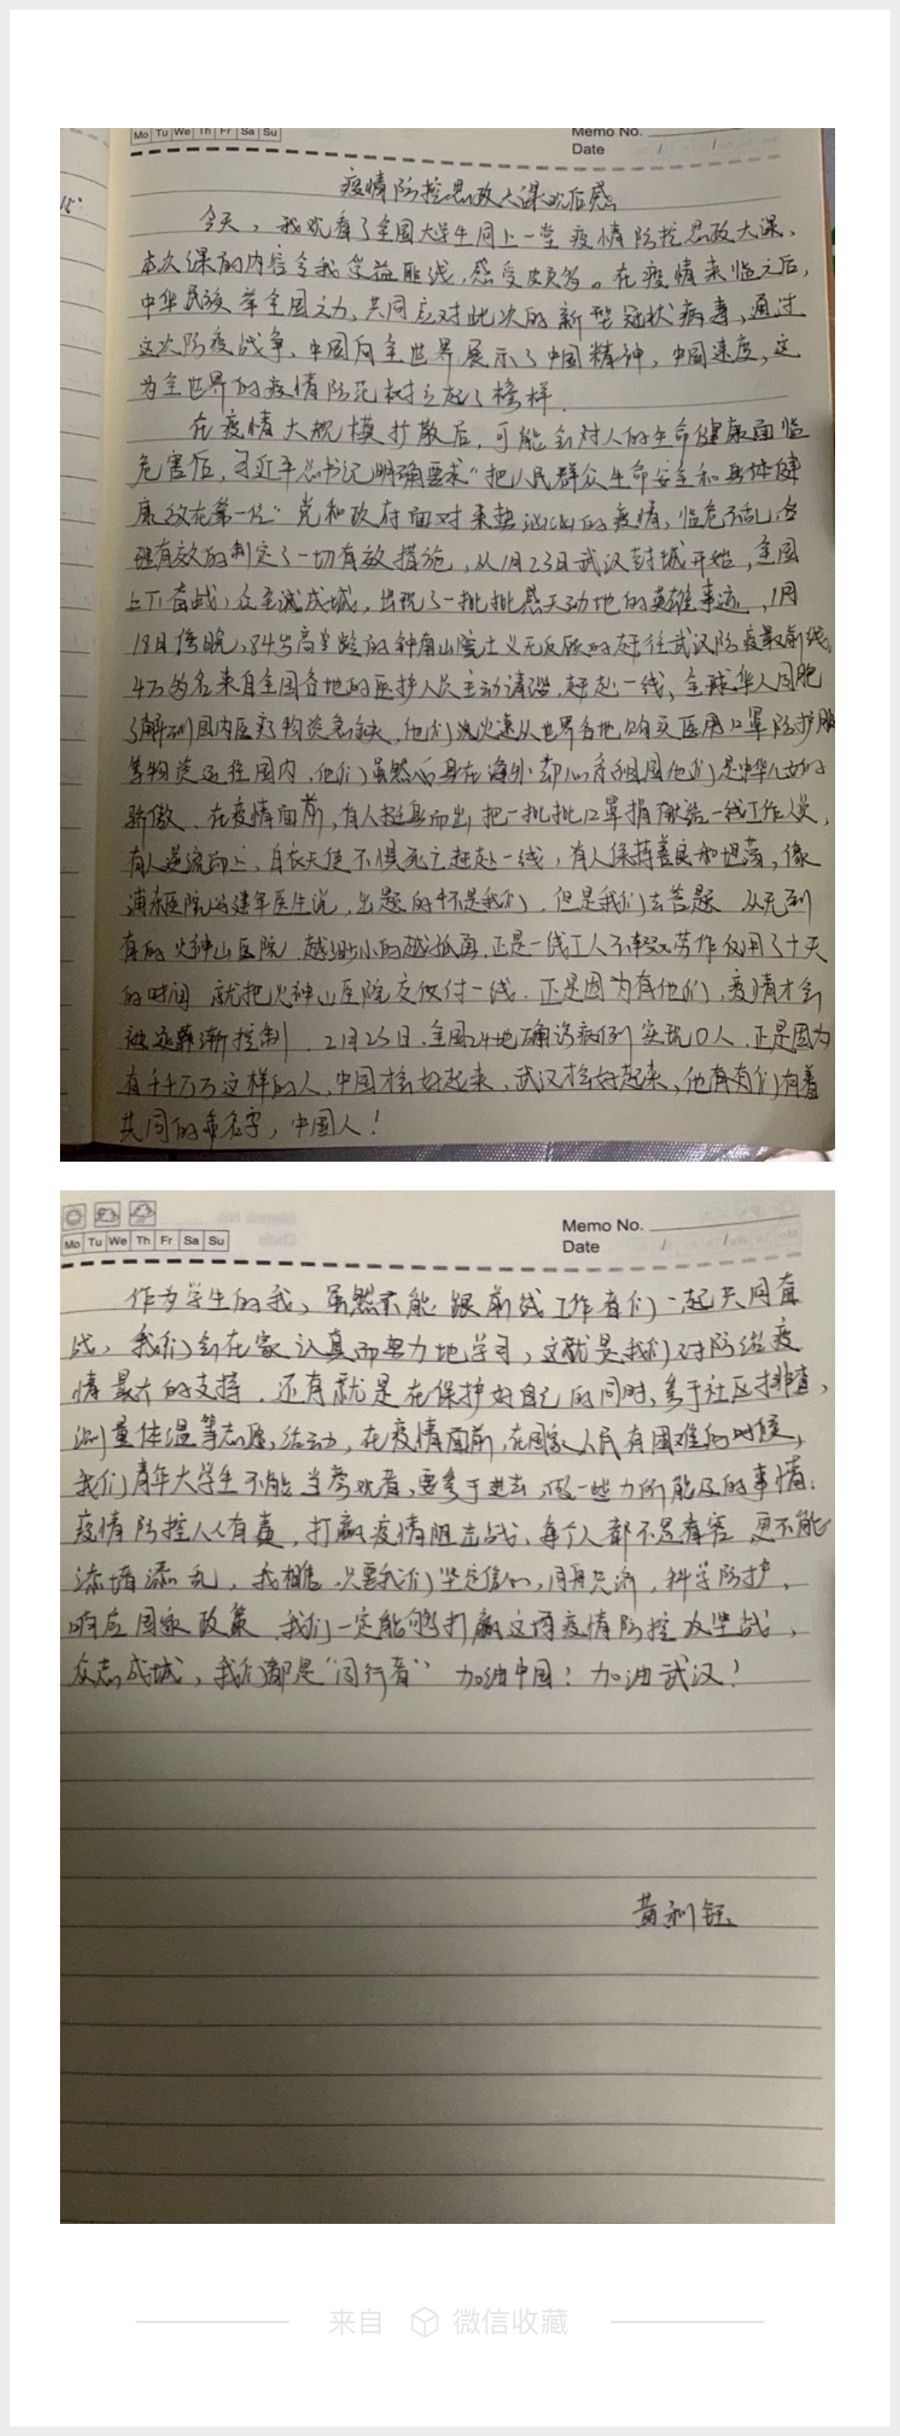 Mo Tu We Th Fr Sa Su
Memo No.
Date / /
15:
疫情防控思政大课观后感
今天，我观看了全国大学生同上一堂疫情防控思政大课、
本次课的内容令我受益匪浅，感受颇多。在疫情来临之后，
中华民族举全国之力，共同应对此次的新型冠状病毒，通过
这次防疫战争、中国向全世界展示了中国精神，中国速度，这
为全世界的疫情防范树立起了榜样．
在疫情大规模扩散后，可能会对人的生命健康面临
危害后，习近平总书记明确要求“把人民群众生命安全和身体健
康放在第一位”党和政府面对来势汹汹的疫情，临危不乱，合
理有效的制定了一切有效措施，从1月23日武汉封城开始，全国
上下奋战，众志诚成城，出现了一批批感天动地的英雄事迹，1月
18日傍晚，84岁高龄的钟南山院士义无反顾的赶往武汉防疫最前线，
4万多名来自全国各地的医护人员主动请缨，赶赴一线，全球华人同胞
了解到国内医疗物资急缺，他们火速从世界各地购买医用口罩防护服
等物资运往国内，他们虽然身在海外却心系祖国他们是中华儿女的
骄傲．在疫情面前，有人挺身而出，把一批批口罩捐献给一线工作人员，
有人逆流而上，白衣天使不惧死亡赶赴一线，有人保持善良和坦荡，像
浦东医院冯建军医生说，出题的不是我们，但是我们去答题 从无到
有的火神山医院 越渺小的越孤勇，正是一线工人不辞劳作仅用了十天
的时间 就把火神山医院交付一线．正是因为有他们，疫情才会
被逐渐控制．2月23日．全国24地确诊病例实现0人．正是因为
有千千万万这样的人，中国才会好起来，武汉才会好起来，他们有着
共同的名字，中国人！
Mo Tu We Th Fr Sa Su
Memo No.
Date / /
作为学生的我，虽然不能跟前线工作者们一起共同奋
战，我们会在家认真而努力地学习，这就是我们对防控疫
情最大的支持．还有就是在保护好自己的同时，参于社区排查，
测量体温等志愿活动，在疫情面前，在国家人民有困难的时候，
我们青年大学生不能当旁观者，要参于进去，做一些力所能及的事情：
疫情防控人人有责，打赢疫情阻击战，每个人都不是看客 更不能
添堵添乱，我相信 只要我们坚定信心，同舟共济，科学防护，
响应国家政策，我们一定能够打赢这场疫情防控攻坚战，
众志成城，我们都是“同行者” 加油中国！加油武汉！
黄利钰
来自 微信收藏